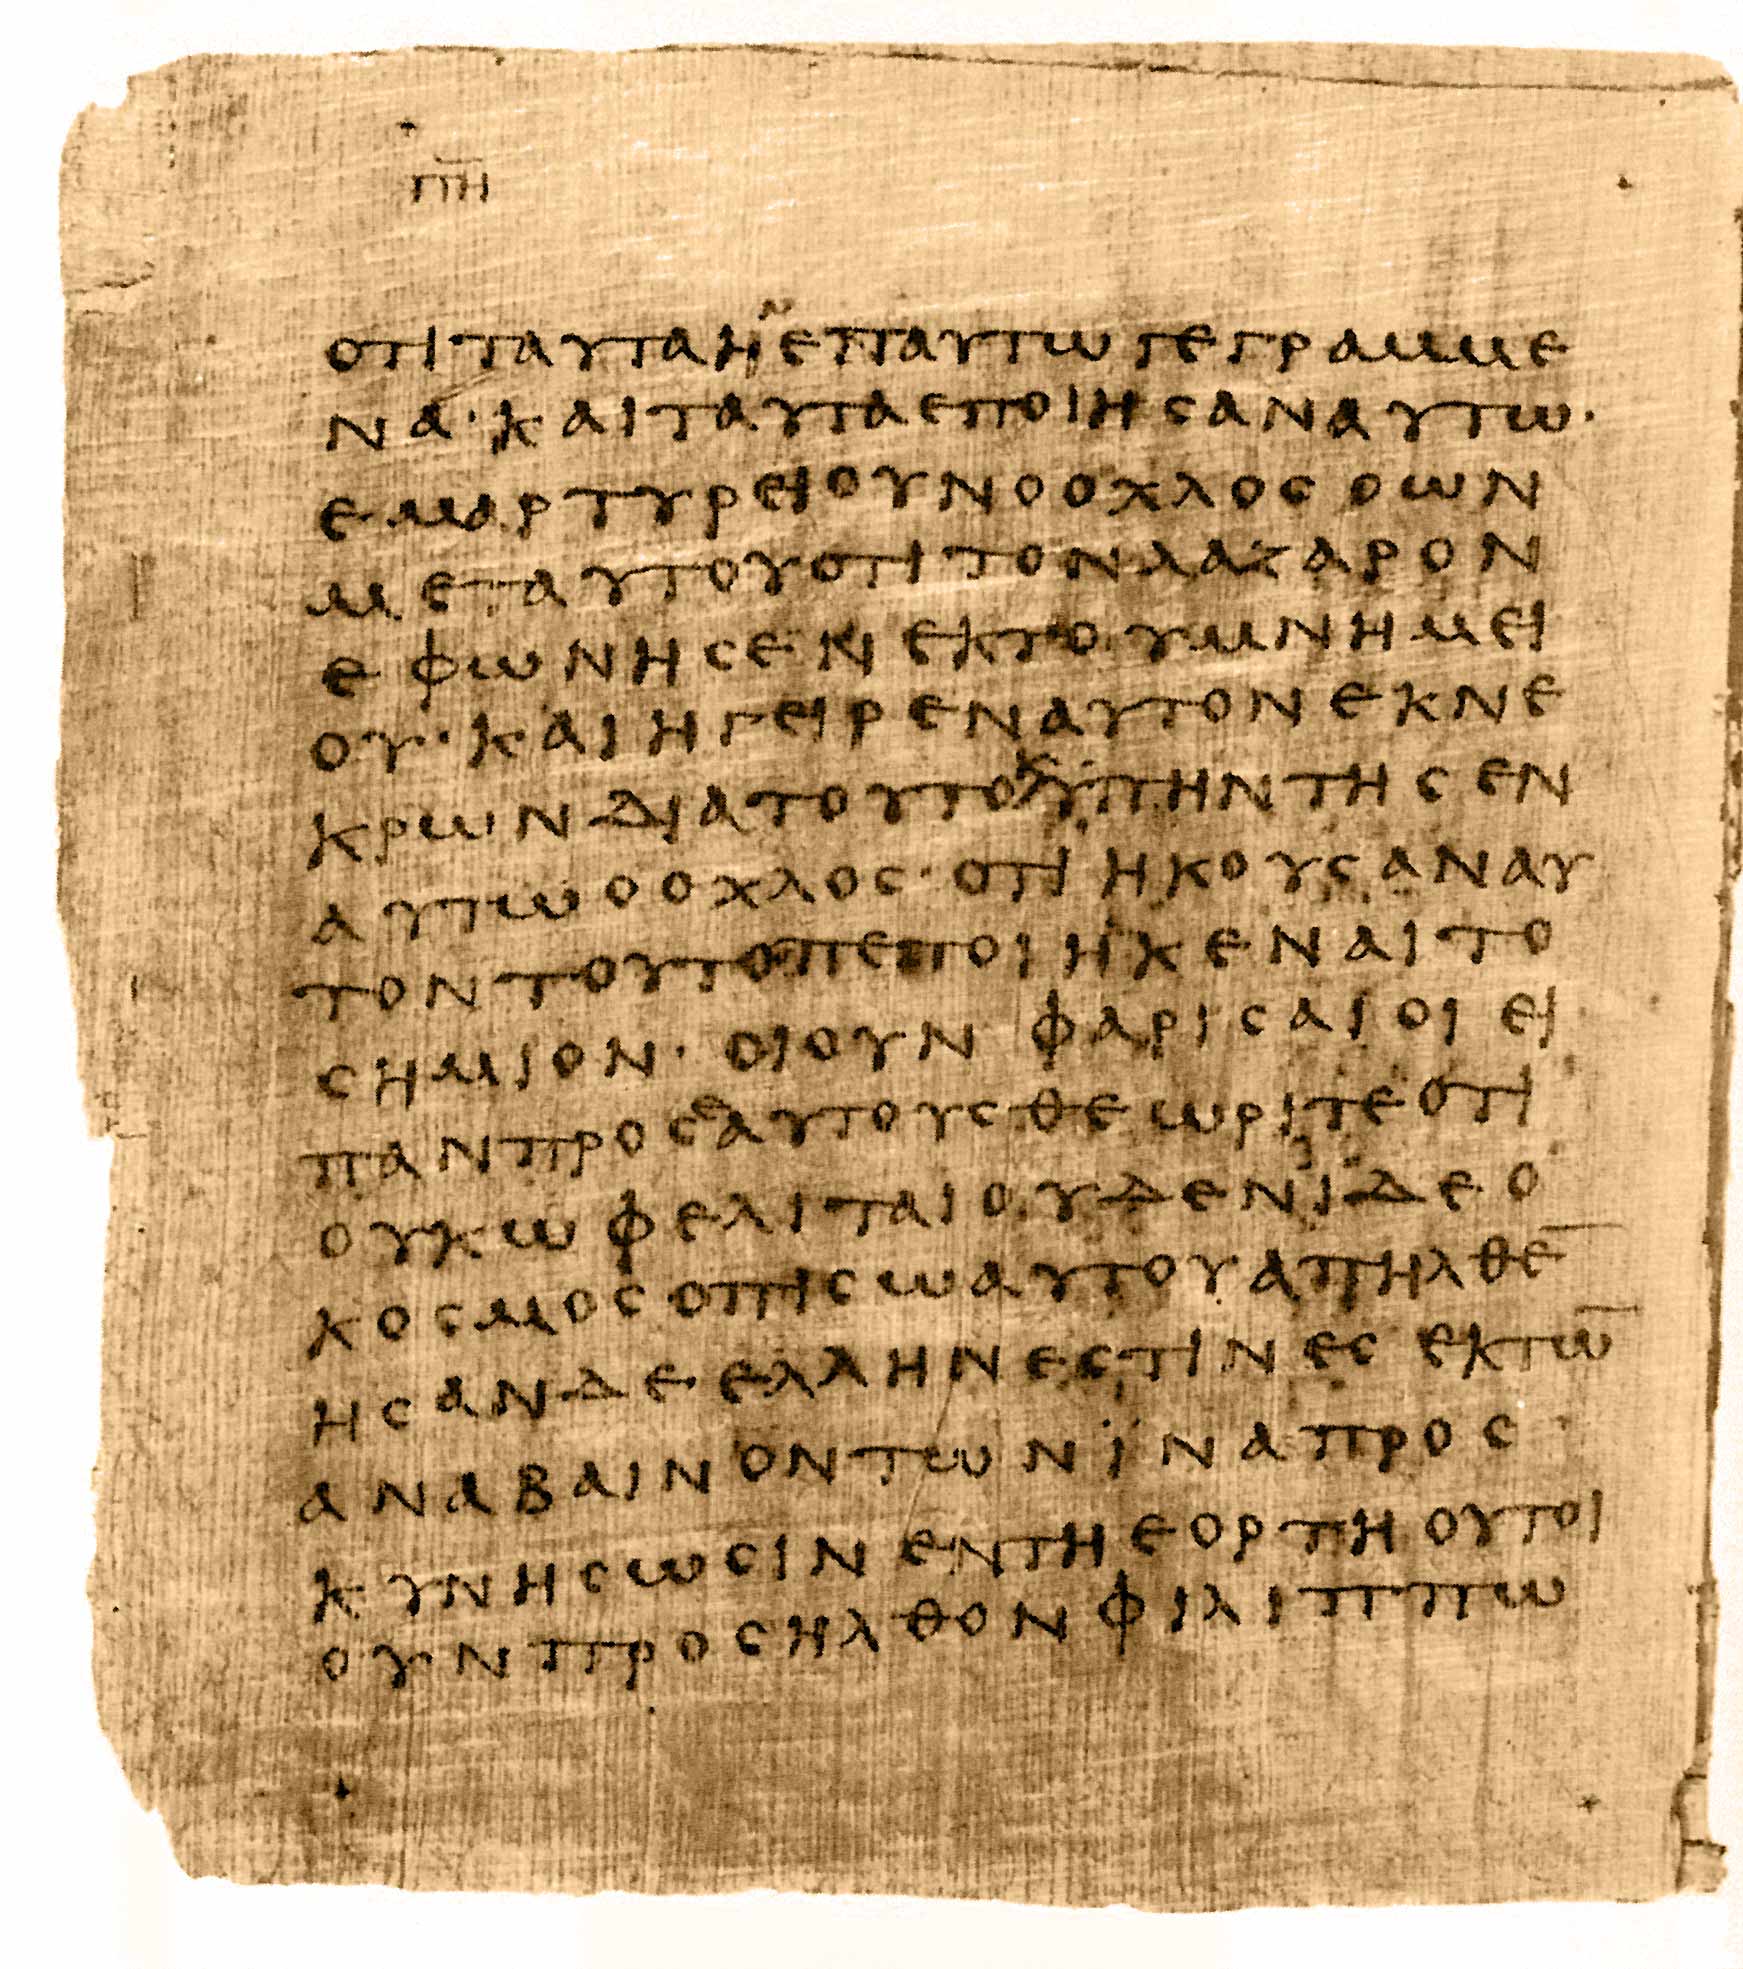 π̅η̅
οτιταυταη`ν´επαυτωγεγραμμε
να·καιταυταεποιησαναυτω·
εμαρτυρειουνοοχλοσοων
μεταυτουοτιτονλαζαρον
εφωνησενεκτουμνημει
ου·καιηγειρεναυτονεκνε
κρωνδιατουτο`και´ϋπηντησεν
αυτωοοχλος·οτιηκουσαναυ
τοντουτοπεποιηκεναιτο
σημιον·οιουνφαρισαιοιει
πανπροσ`ε´αυτουσθεωριτεοτι
ουκωφελιταιουδενϊδεο
κοσμοσοπισωαυτουαπηλθε̅
ησανδεελληνεστινεσεκτω̅
αναβαινοντωνϊναπροσ
κυνησωσινεντηεορτηουτοι
ουνπροσηλθονφιλιππω